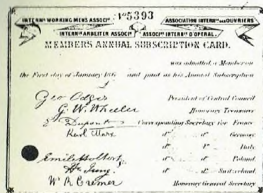 INTERN'L WORKING MENS ASSOC'N
Nº 5393
ASSOCIATION INTERN'LE DES OUVRIERS
INTERN'LE ARBEITER ASSOC'N
ASSOC'NE INTERN'LE D'OPERAI
MEMBERS ANNUAL SUBSCRIPTION CARD.
was admitted a Member on
the First day of January 186 and paid as his Annual Subscription
Geo Odger President of Central Council
G. W. Wheeler Honorary Treasurer
E. Dupont Corresponding Secretary for France
Karl Marx Dº Dº Germany
Dº Dº Italy
Dº Dº Poland
H. Jung Dº Dº Switzerland
W. R. Cremer Honorary General Secretary